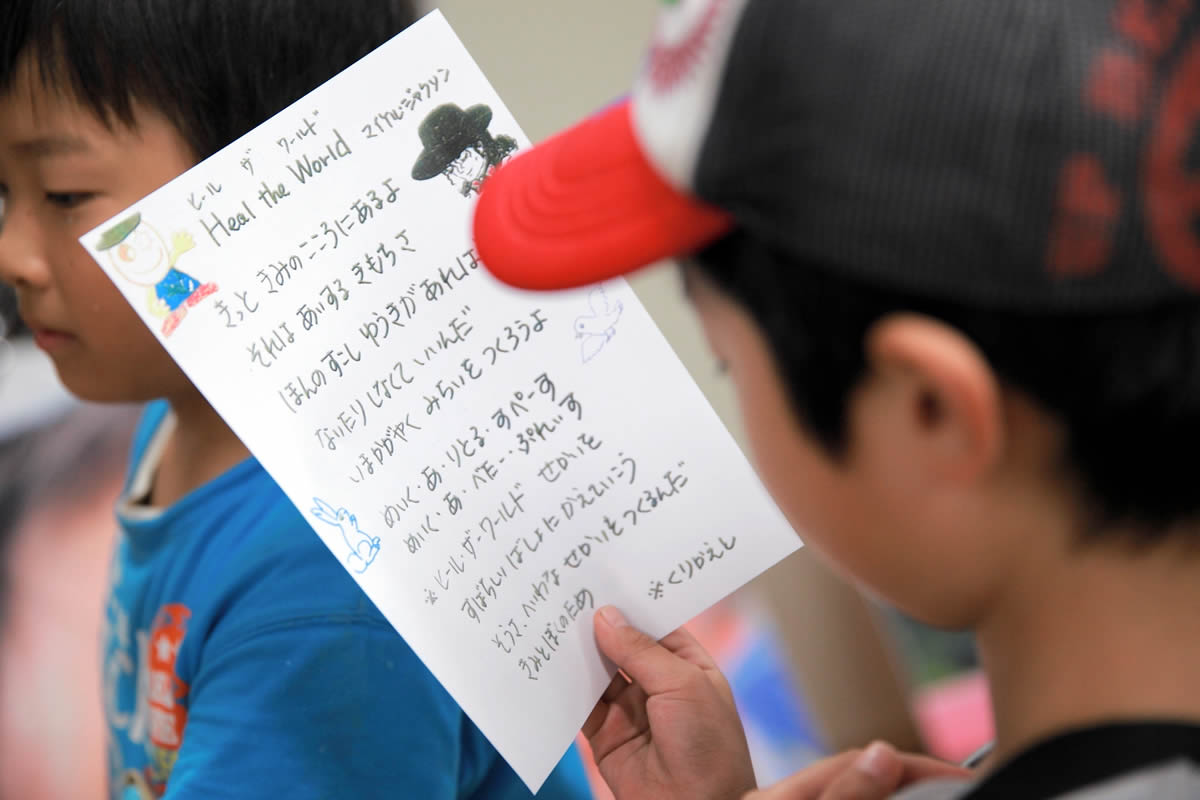 ヒール ザ ワールド
Heal the World マイケル・ジャクソン
きっと きみの こころに あるよ
それは あいする きもちさ
ほんの すこし ゆうきが あれば
ないたり しなくて いいんだ
いまかがやく みらいを つくろうよ
めいく・あ・りとる・すぺーす
めいく・あ・べたー・ぷれいす
※ヒール・ザ・ワールド せかいを
すばらしい ばしょに かえていこう
そうさ、へいわな せかいを つくるんだ
きみとぼくのため
※くりかえし